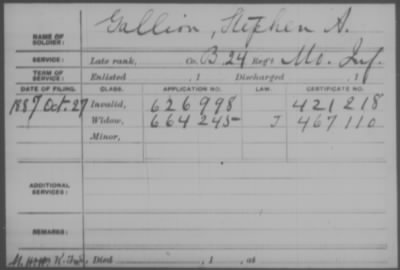 NAME OF SOLDIER: Gallion, Stephen A.
SERVICE: Late rank, Co. B, 24 Reg't Mo. Inf.
TERM OF SERVICE: Enlisted , 1 Discharged , 1
DATE OF FILING. CLASS. APPLICATION NO. LAW. CERTIFICATE NO.
1887 Oct. 27 Invalid, 626998 421218
Widow, 664245 J 467110
Minor,
ADDITIONAL SERVICES:
REMARKS:
Died , 1 , at